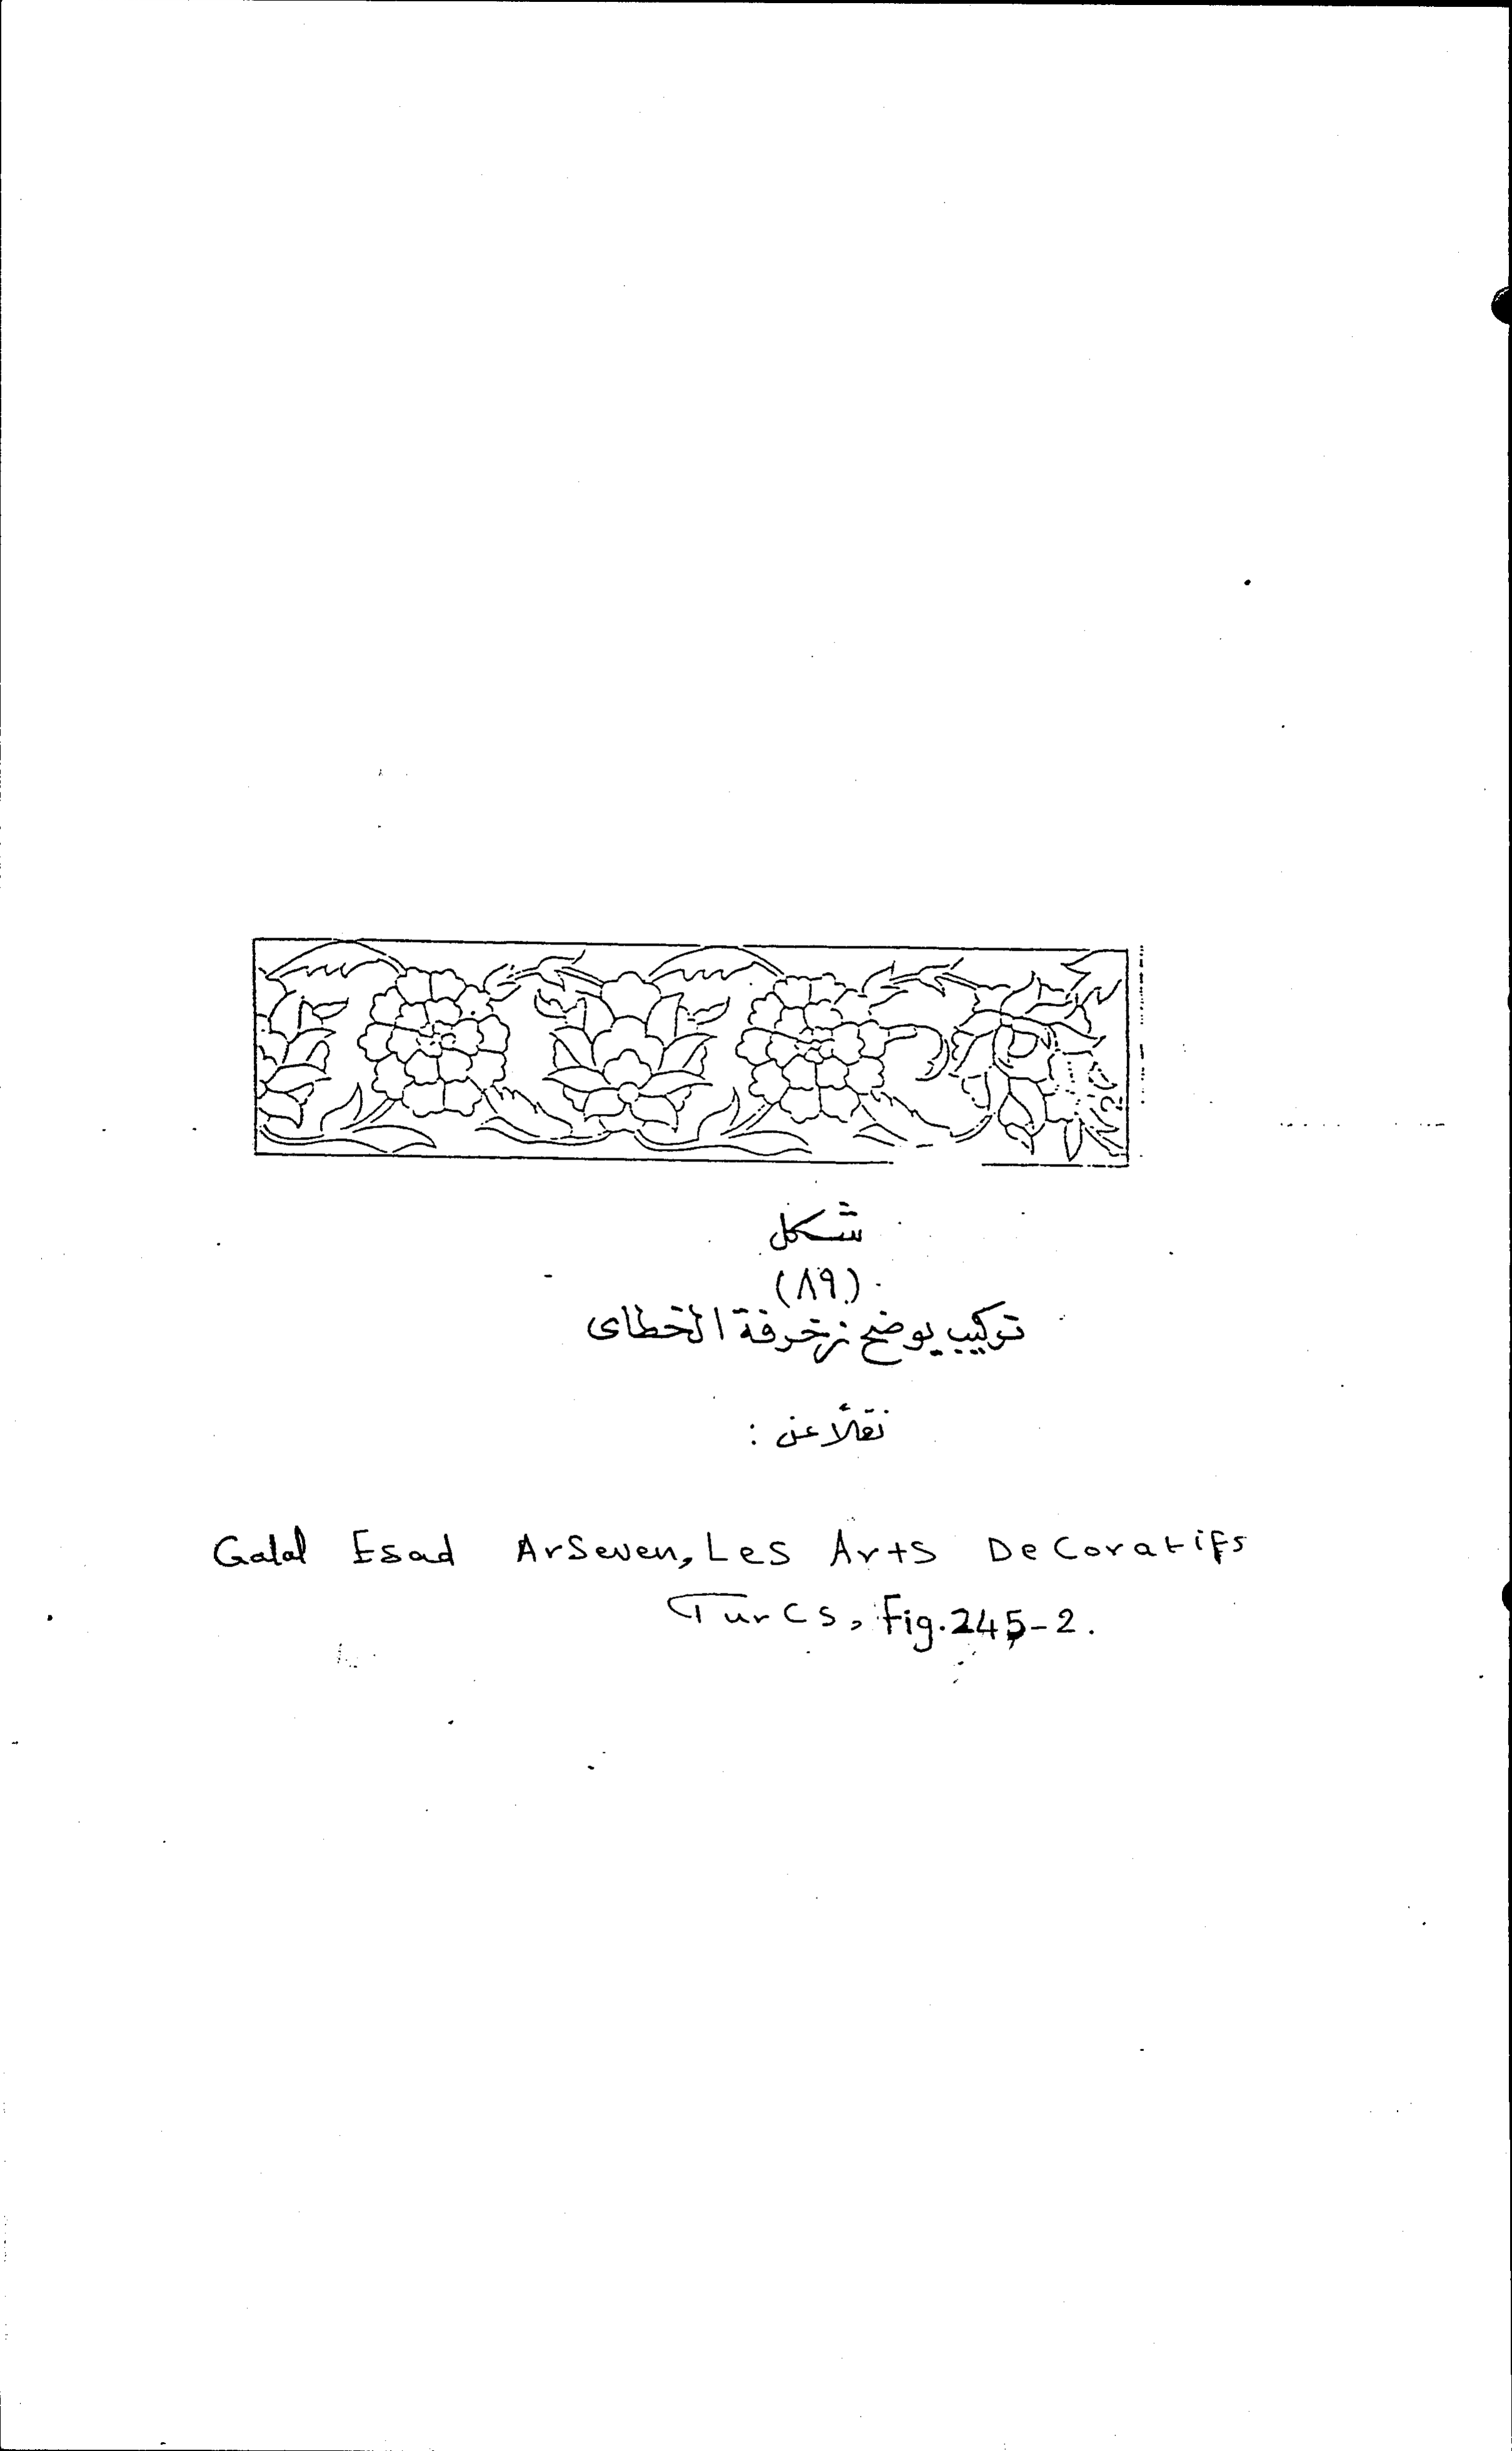 شكل
(٨٩)
تركيب يوضح زخرفة الخطاى
نقلاً عن :
Galal Esad ArSeven, Les Arts DeCoratifs
TurCs, Fig.245-2.